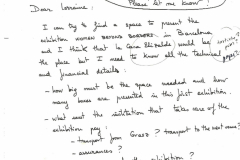 Please let me know?
Dear Lorraine,
I can try to find a space to present the
exhibition WOMEN BEYOND BORDERS in Barcelona
and I think that la Cana Elizalde would be
the place but I need to know all the technical
and financial details:
- how big must be the space needed and how
many boxes are presented in this first exhibition.
- what must the institution that takes care of the
exhibition pay:
- transport from Graz? transport to the next venue?
- assurances?
the exhibition?